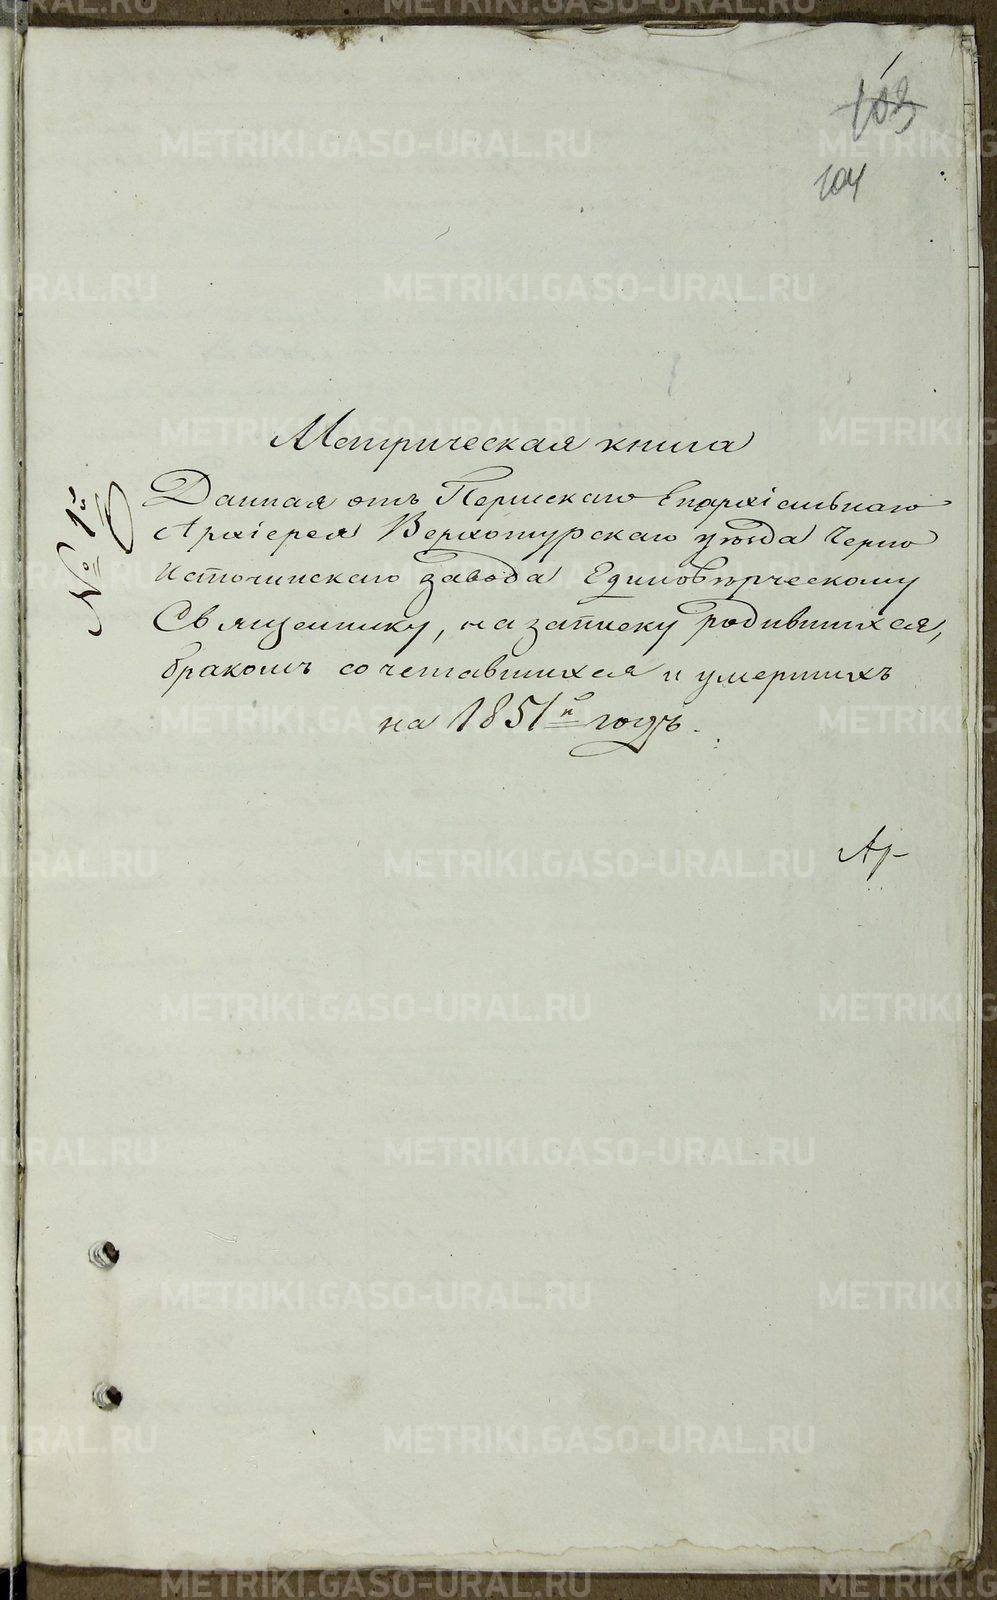 103
104
Метрическая книга
Данная отъ Пермскаго Епархіальнаго
Архіерея Верхотурскаго уѣзда Черно
Источинскаго завода Единовѣрческому
Священнику, на записку родившихся,
бракомъ сочетавшихся и умершихъ
на 1851й годъ.
№ 13
METRIKI.GASO-URAL.RU